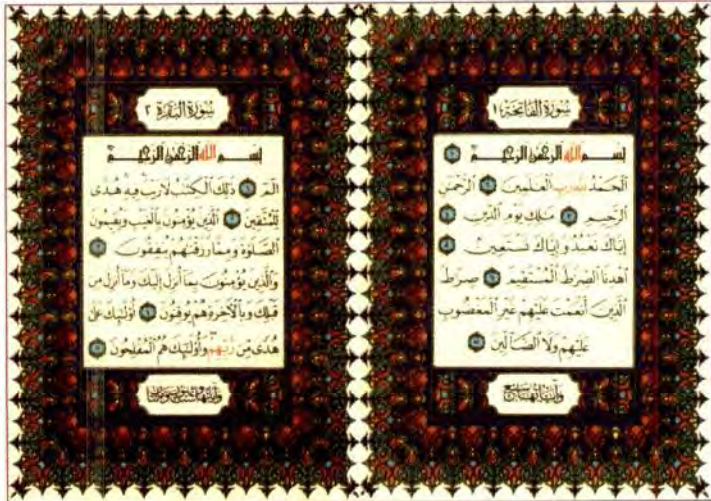 سُورَةُ الْفَاتِحَةِ ١
بِسْمِ اللَّهِ الرَّحْمَٰنِ الرَّحِيمِ ١
الْحَمْدُ لِلَّهِ رَبِّ الْعَالَمِينَ ٢ الرَّحْمَٰنِ
الرَّحِيمِ ٣ مَٰلِكِ يَوْمِ الدِّينِ ٤
إِيَّاكَ نَعْبُدُ وَإِيَّاكَ نَسْتَعِينُ ٥
اهْدِنَا الصِّرَٰطَ الْمُسْتَقِيمَ ٦ صِرَٰطَ
الَّذِينَ أَنْعَمْتَ عَلَيْهِمْ غَيْرِ الْمَغْضُوبِ
عَلَيْهِمْ وَلَا الضَّالِّينَ ٧
وآياتها سبع
سُورَةُ الْبَقَرَةِ ٢
بِسْمِ اللَّهِ الرَّحْمَٰنِ الرَّحِيمِ
الٓمٓ ١ ذَٰلِكَ الْكِتَٰبُ لَا رَيْبَ فِيهِ هُدًى
لِّلْمُتَّقِينَ ٢ الَّذِينَ يُؤْمِنُونَ بِالْغَيْبِ وَيُقِيمُونَ
الصَّلَوٰةَ وَمِمَّا رَزَقْنَٰهُمْ يُنفِقُونَ ٣
وَالَّذِينَ يُؤْمِنُونَ بِمَا أُنزِلَ إِلَيْكَ وَمَا أُنزِلَ مِن
قَبْلِكَ وَبِالْآخِرَةِ هُمْ يُوقِنُونَ ٤ أُولَٰئِكَ عَلَىٰ
هُدًى مِّن رَّبِّهِمْ وَأُولَٰئِكَ هُمُ الْمُفْلِحُونَ ٥